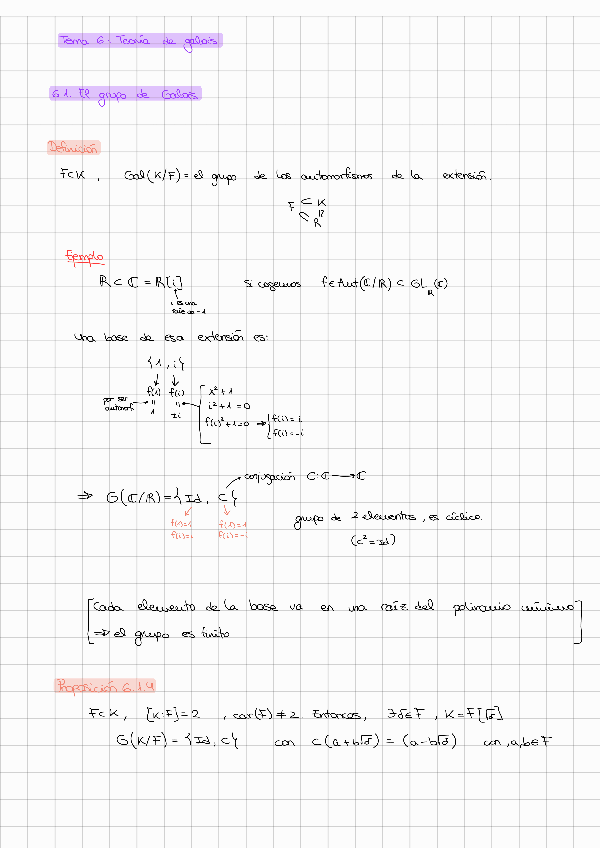 Tema 6: Teoría de galois
6.1. El grupo de Galois
Definición
F⊂K , Gal(K/F) = el grupo de los automorfismos de la extensión.
F ⊂ K
R
Ejemplo
ℝ ⊂ ℂ = ℝ[i] si cogemos f∈Aut(ℂ/ℝ) ⊂ GL_ℝ(ℂ)
i es una
raíz de -1
una base de esa extensión es:
{1, i}
por ser automorf. f(1) f(i)
" "
1 ±i
x²+1
i²+1=0
f(i)²+1=0 → f(i)=i
f(i)=-i
conjugación C:ℂ→ℂ
⇒ G(ℂ/ℝ)={Id, C}
f(1)=1 f(1)=1
f(i)=i f(i)=-i
grupo de 2 elementos, es cíclico.
(c²=Id)
Cada elemento de la base va en una raíz del polinomio mínimo
⇒ el grupo es finito
Proposición 6.1.4
F⊂K, [K:F]=2 , car(F)≠2 Entonces, ∃δ∈F , K=F[√δ]
G(K/F)={Id, C} con C(a+b√δ) = (a-b√δ) con a,b∈F